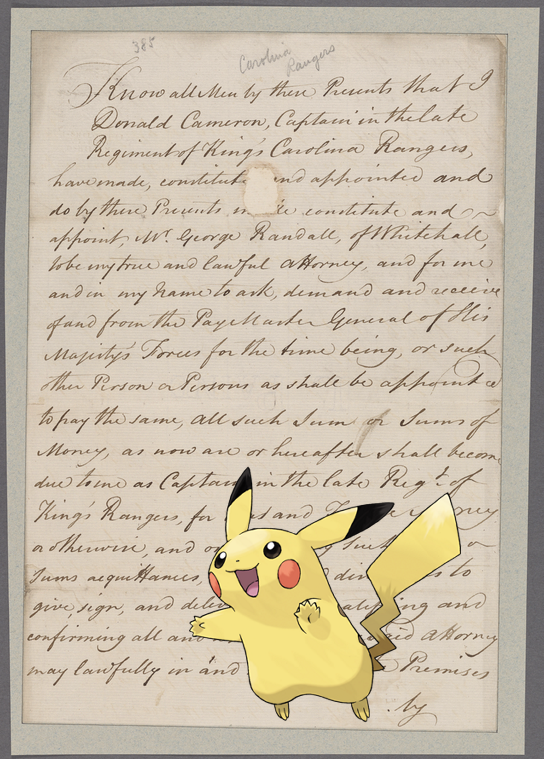 385
Carolina
Rangers
Know all Men by these Presents that I
Donald Cameron, Captain in the late
Regiment of King's Carolina Rangers,
have made, constitute and appointed and
do by these Presents constitute and
appoint, Mr. George Randall, of Whitehall,
to be my true and lawful Attorney, and for me
and in my Name to ask, demand and receive
of and from the Pay Master General of His
Majesty's Forces for the time being, or such
other Person or Persons as shall be appointed
to pay the same, all such Sum or Sums of
Money, as now are or hereafter shall become
due to me as Captain in the late Regt. of
King's Rangers, for and
or otherwise, and
Sums acquittances, to
give, sign, and and
confirming all and Attorney
may lawfully in and Premises
by